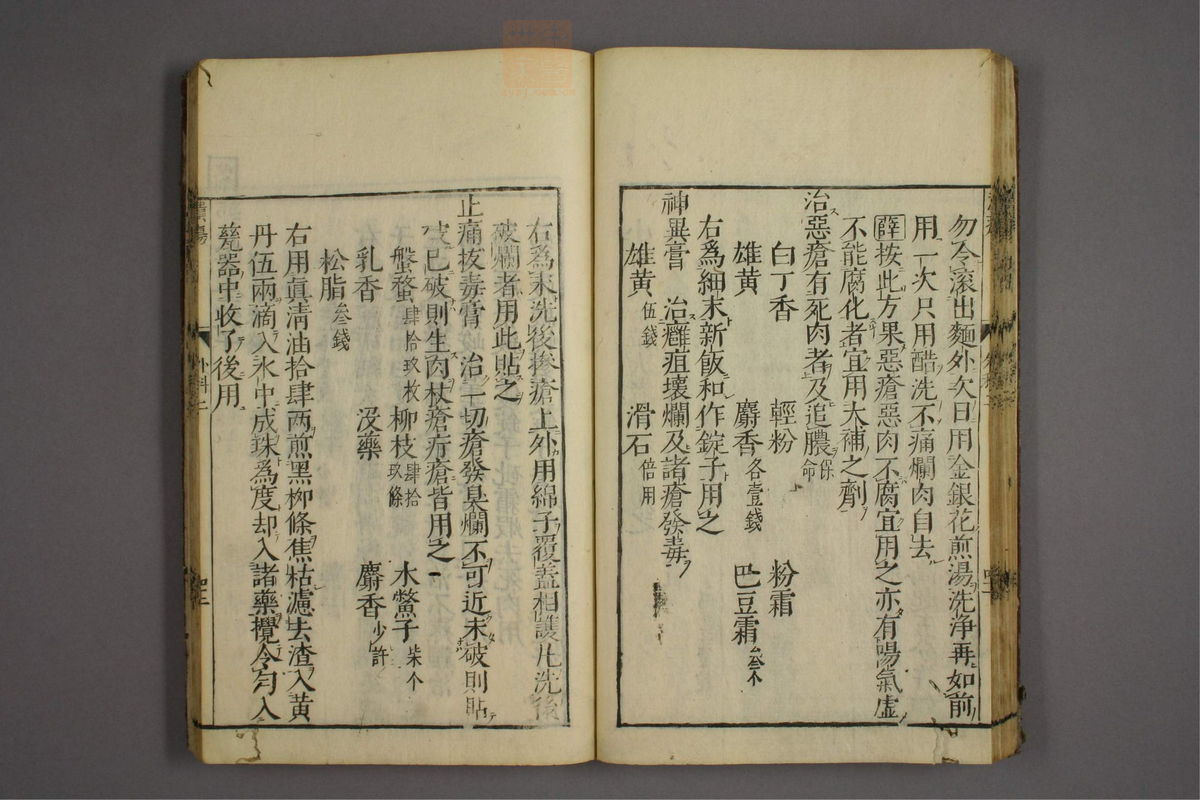 勿令滚出麵外次日用金銀花煎湯洗净再如前
用一次只用醋洗不痛爛肉自去
薛按此方果惡瘡惡肉不腐宜用之亦有陽氣虚
不能腐化者宜用大補之劑
治惡瘡有死肉者及追膿保命
白丁香 輕粉 粉霜
雄黄 麝香各壹錢 巴豆霜叁个
右爲細末新飯和作錠子用之
神異膏 治癰疽壞爛及諸瘡發毒
雄黄伍錢 滑石倍用
右爲末洗後摻瘡上外用綿子覆蓋相護凡洗後
破爛者用此貼之
止痛拔毒膏 治一切瘡發臭爛不可近未破則貼
破已破則生肉杖瘡疔瘡皆用之
盤蝥肆拾玖枚 柳枝肆拾玖條 木鱉子柒个
乳香 没藥 麝香少許
松脂叁錢
右用眞清油拾肆两煎黑柳條焦枯濾去渣入黄
丹伍兩滴入水中成珠爲度却入諸藥攪令匀入
甆器中收了後用
外科二